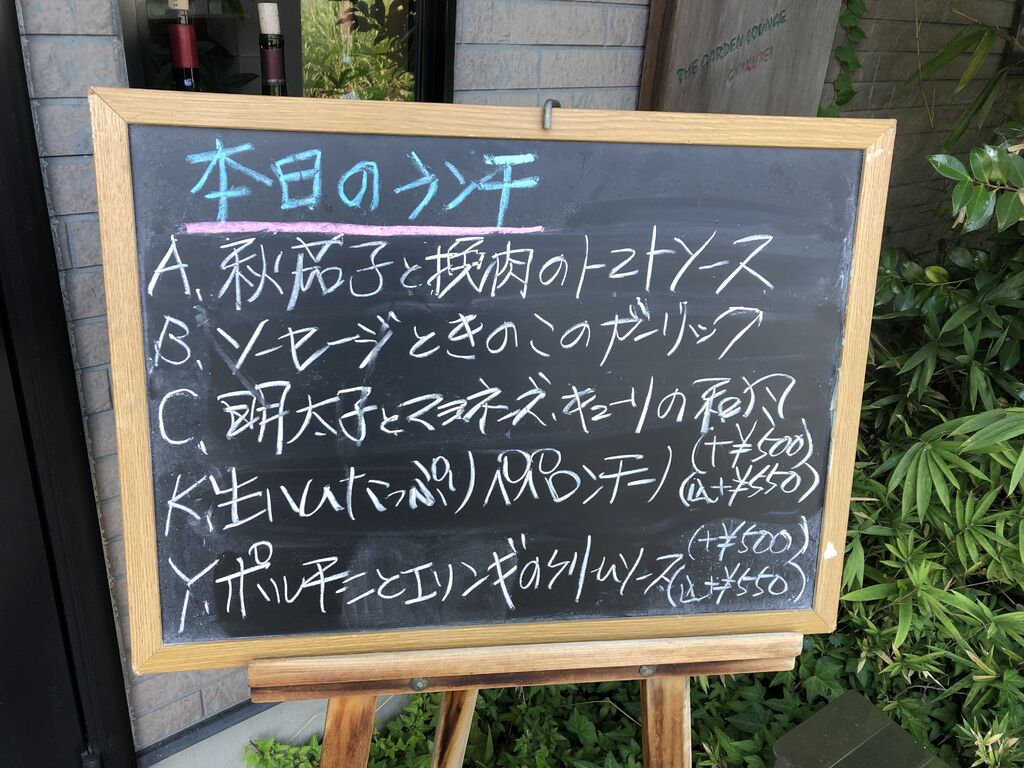 THE GARDEN LOUNGE
本日のランチ
A、秋茄子と挽肉のトマトソース
B、ソーセージときのこのガーリック
C、明太子とマヨネーズ、キューリの和風
(+¥500)
K、生ハムたっぷりペペロンチーノ (込+¥550)
(+¥500)
Y、ポルチーニとエリンギのクリームソース (込+¥550)